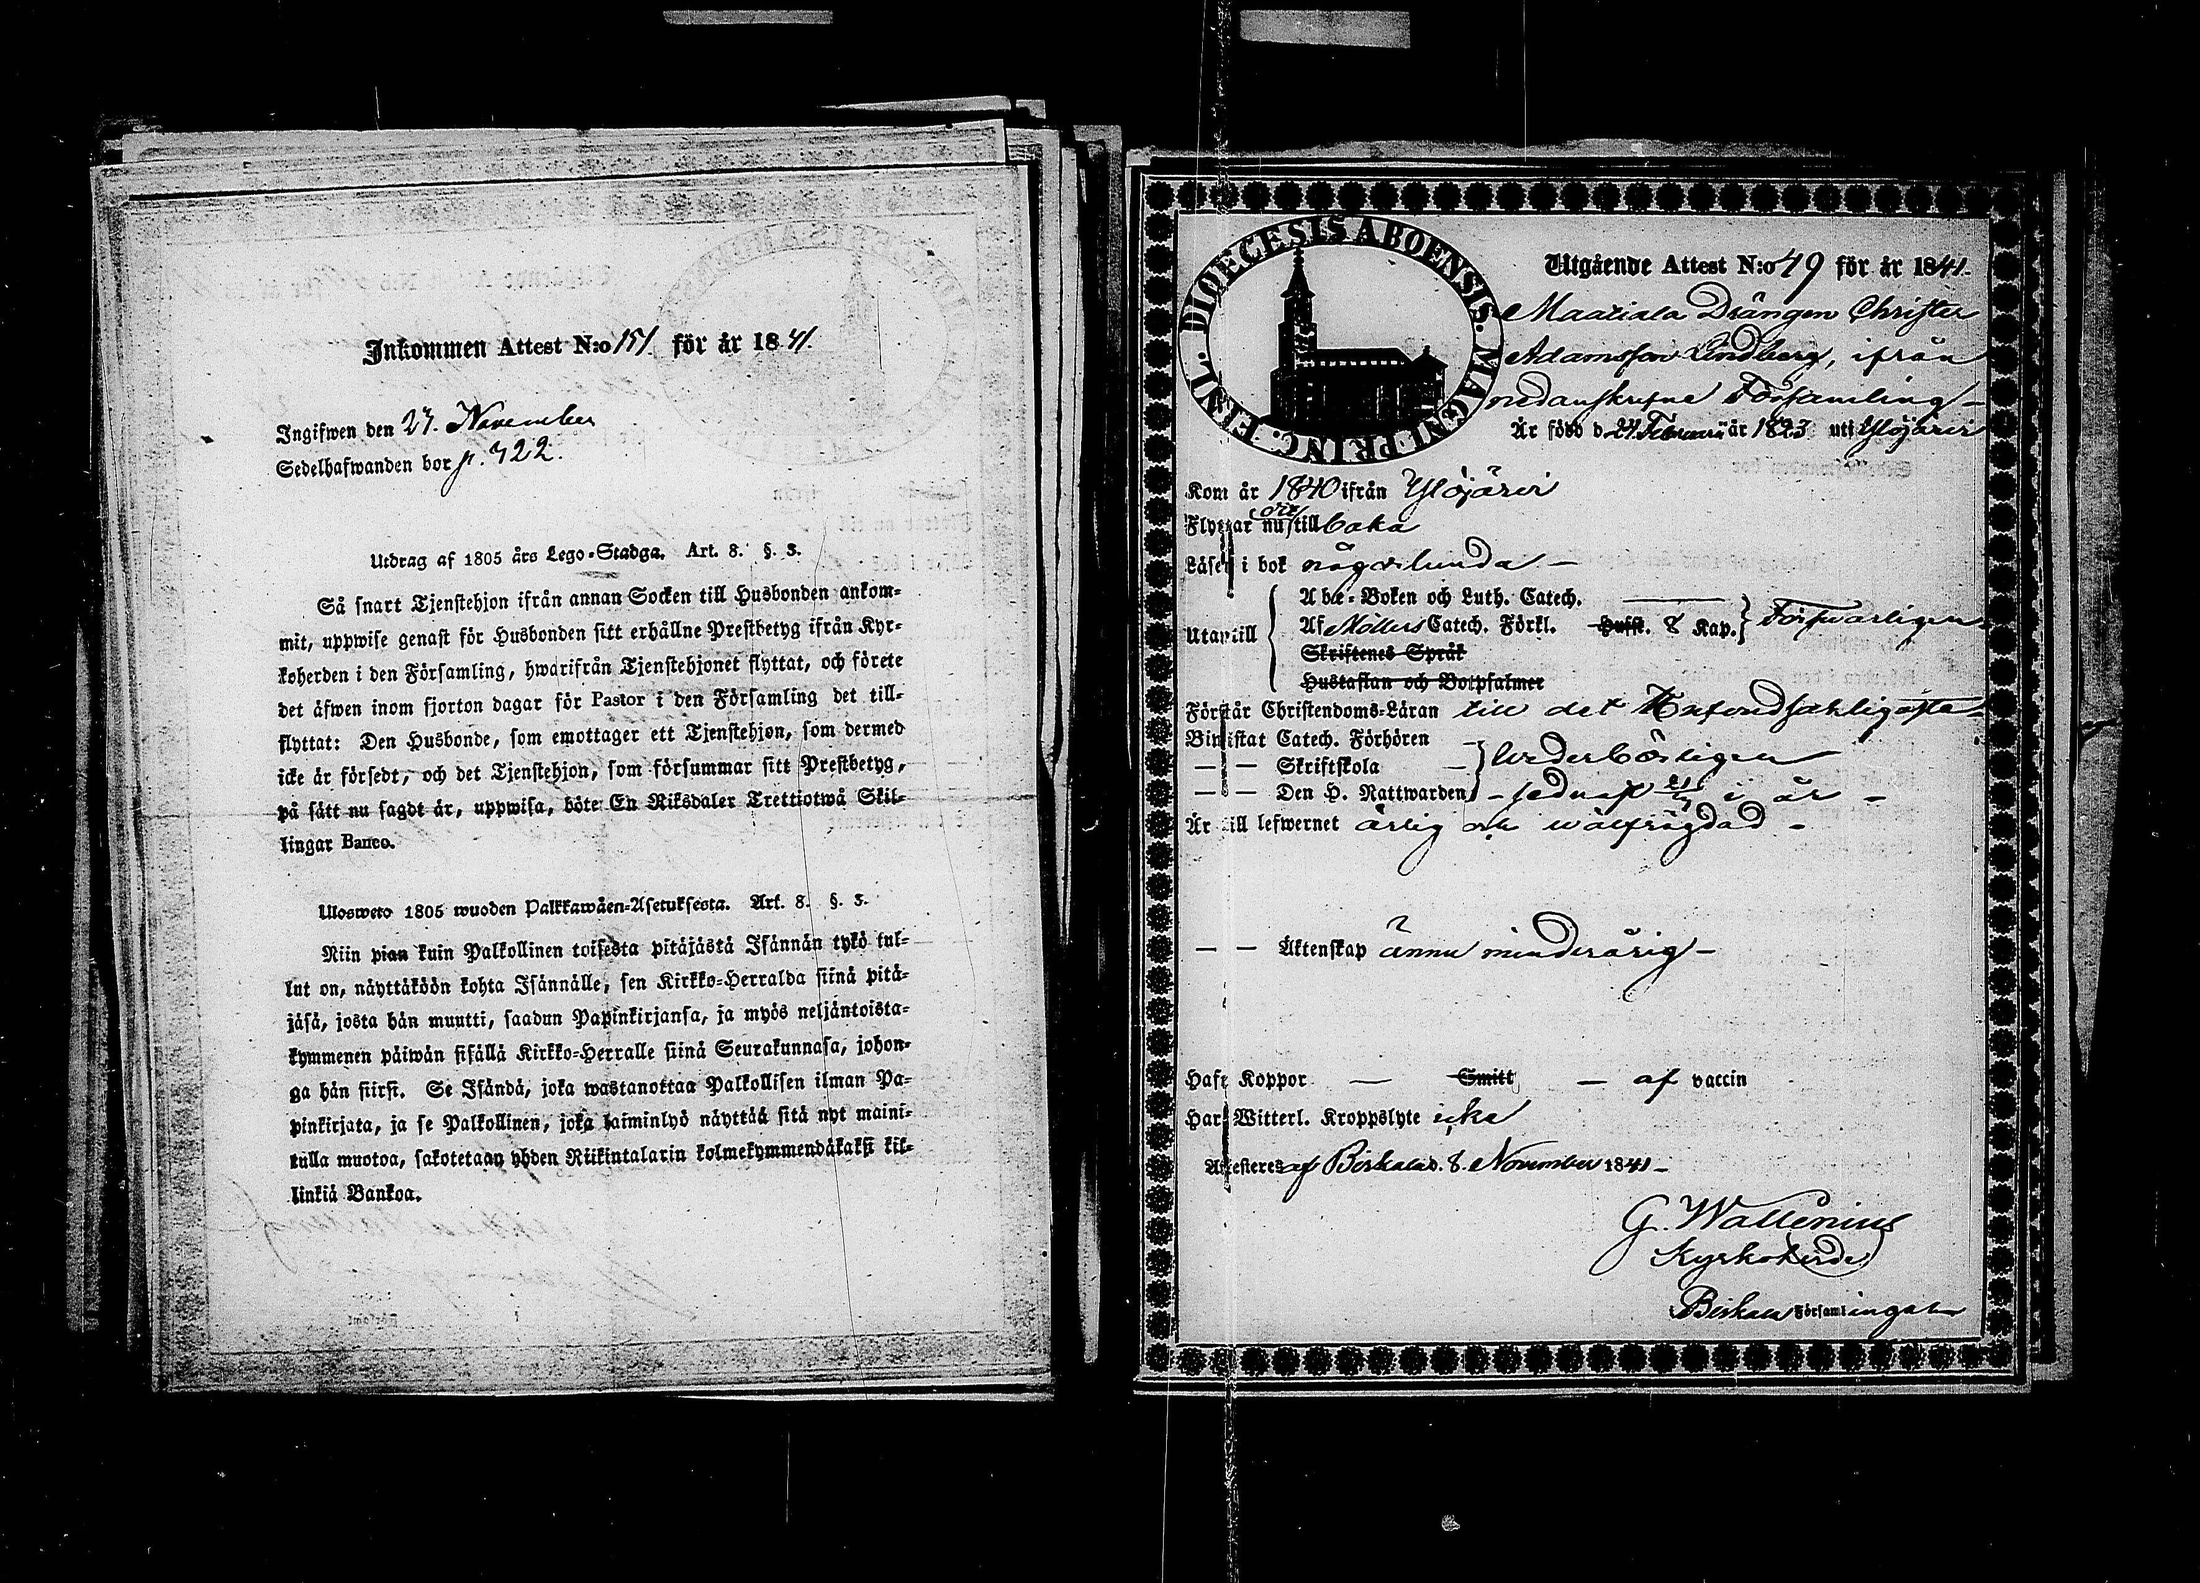 Inkommen Attest N:o 151. för år 1841.
Ingifwen den 27. November
Sedelhafwanden bor p. 722.
Utdrag af 1805 års Lego-Stadga. Art. 8. §. 3.
Så snart Tjenstehjon ifrån annan Socken till Husbonden ankom-
mit, uppwise genast för Husbonden sitt erhållne Prestbetyg ifrån Kyr-
koherden i den Församling, hwarifrån Tjenstehjonet flyttat, och förete
det äfwen inom fjorton dagar för Pastor i den Församling det till-
flyttat: Den Husbonde, som emottager ett Tjenstehjon, som dermed
icke är försedt, och det Tjenstehjon, som försummar sitt Prestbetyg,
på sätt nu sagdt är, uppwisa, böte En Riksdaler Trettiotwå Skil-
lingar Banco.
Ulosweto 1805 wuoden Palkkawäen-Asetuksesta. Art. 8. §. 3.
Niin pian kuin Palkollinen toisesta pitäjästä Isännän tykö tul-
lut on, näyttäköön kohta Isännälle, sen Kirkko-Herralda siinä pitä-
jäsä, josta hän muutti, saadun Papinkirjansa, ja myös neljäntoista-
kymmenen päiwän sisällä Kirkko-Herralle siinä Seurakunnasa, johon-
ga hän siirsi. Se Isändä, joka wastanottaa Palkollisen ilman Pa-
pinkirjata, ja se Palkollinen, joka laiminlyö näyttää sitä nyt maini-
tulla muotoa, sakotetaan yhden Riikintalarin kolmekymmendäkaksi kil-
linkiä Bankoa.
EMIL. DIOECESIS ABOENSIS. MAGNI PRINC. F
Utgående Attest N:o 49 för år 1841.
Maatiala Drängen Christer
Adamsson Lindberg, ifrån
nedanskrefne Församling
Är född d. 24 Februari år 1823 uti Ylöjärvi
Kom år 1840 ifrån Ylöjärvi
Flyttar nu dit tillbaka
Läser i bok någorlunda
Abc-Boken och Luth. Catech.
Utantill Af Möllers Catech. Förkl. Hufst. 8 Kap. Försvarligen
Skriftenes Språk
Hustaflan och Botpsalmer
Förstår Christendoms-Läran till det
Biwistat Catech. Förhören
— — Skriftskola wederbörligen
— — Den H. Nattwarden sednast i år
Är till lefwernet ärlig och wälfrägdad
— — Äktenskap ännu minderårig
Haft Koppor — Smitt — af vaccin
Har Witterl. Kroppslyte icke
Attesteres af Birkala d. 8. November 1841
G. Wallenius
Kyrkoherde
Birkala Församlingen